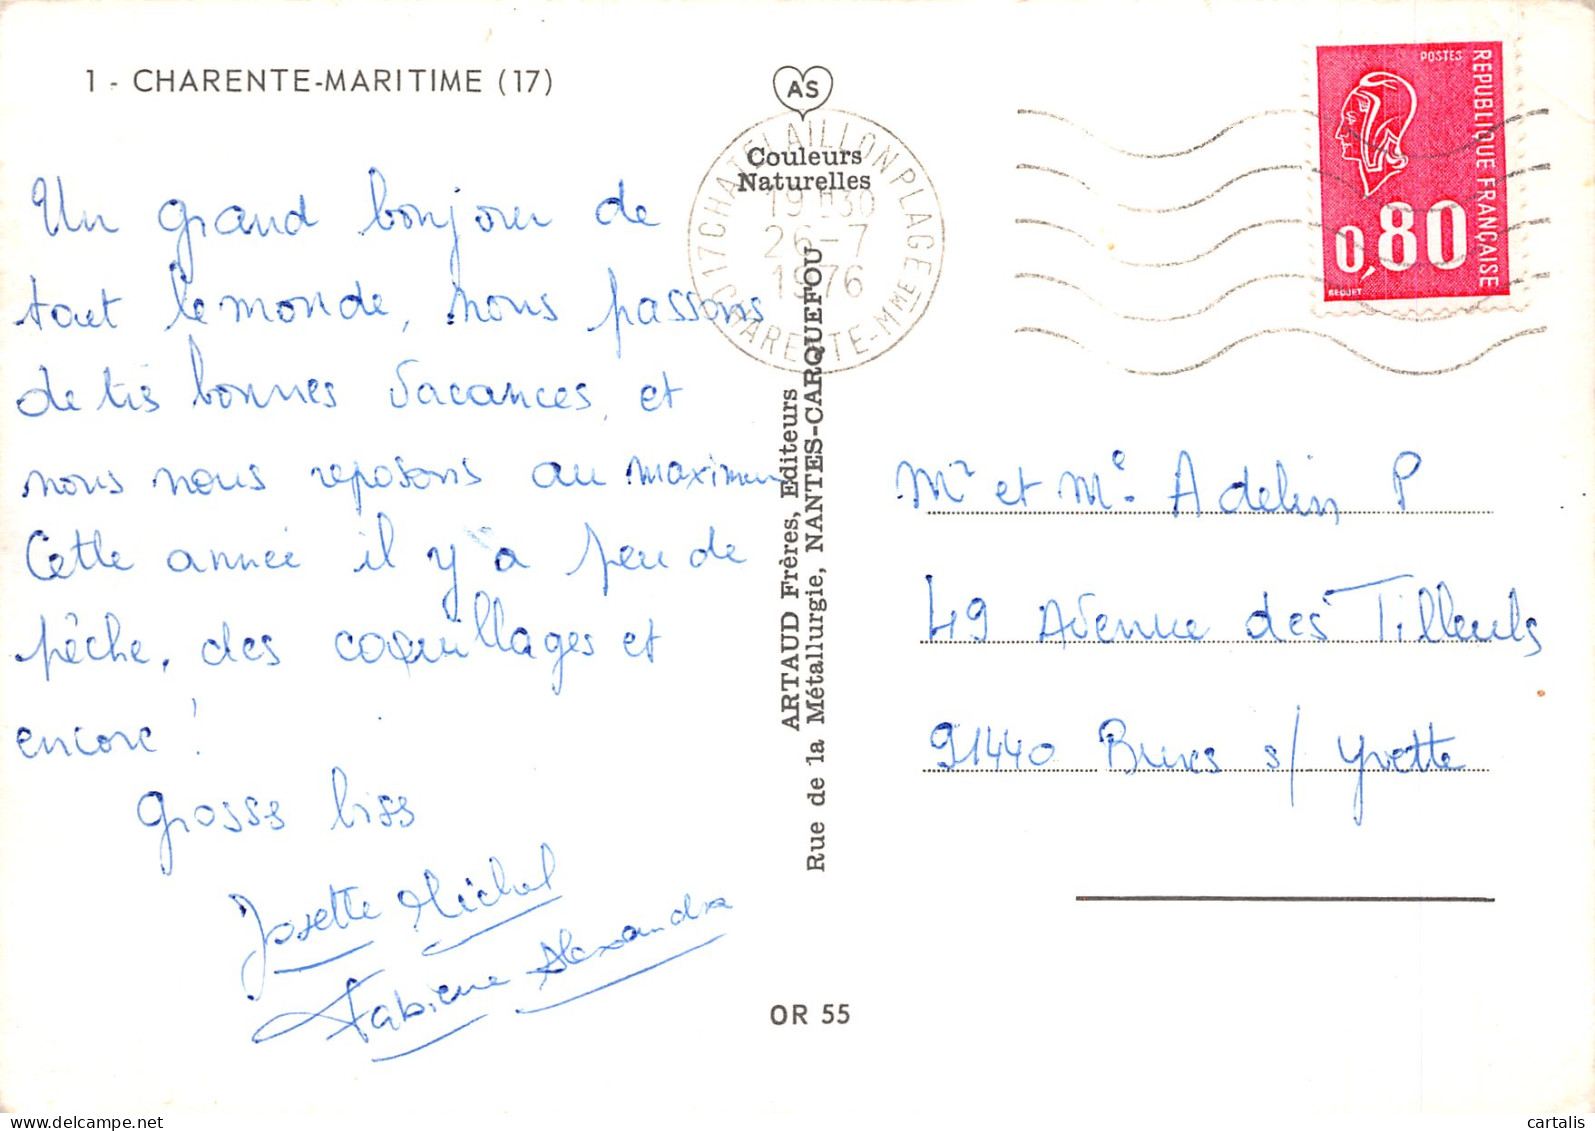 1 - CHARENTE-MARITIME (17)
Un grand bonjour de
tout le monde, nous passons
de très bonnes vacances, et
nous nous reposons au maximum
Cette année il y a peu de
pêche, des coquillages et
encore !
grosses biss
Josette Michel
Fabienne Alexandre
AS
Couleurs
Naturelles
17 CHATELAILLON PLAGE
19H30
26-7
1976
CHARENTE-MME
ARTAUD Frères, Editeurs
Rue de la Métallurgie, NANTES-CARQUEFOU
OR 55
POSTES
REPUBLIQUE FRANÇAISE
0,80
BEQUET
Mr et Me Adelin P
49 Avenue des Tilleuls
91440 Bures s/ Yvette
www.delcampe.net
cartalis